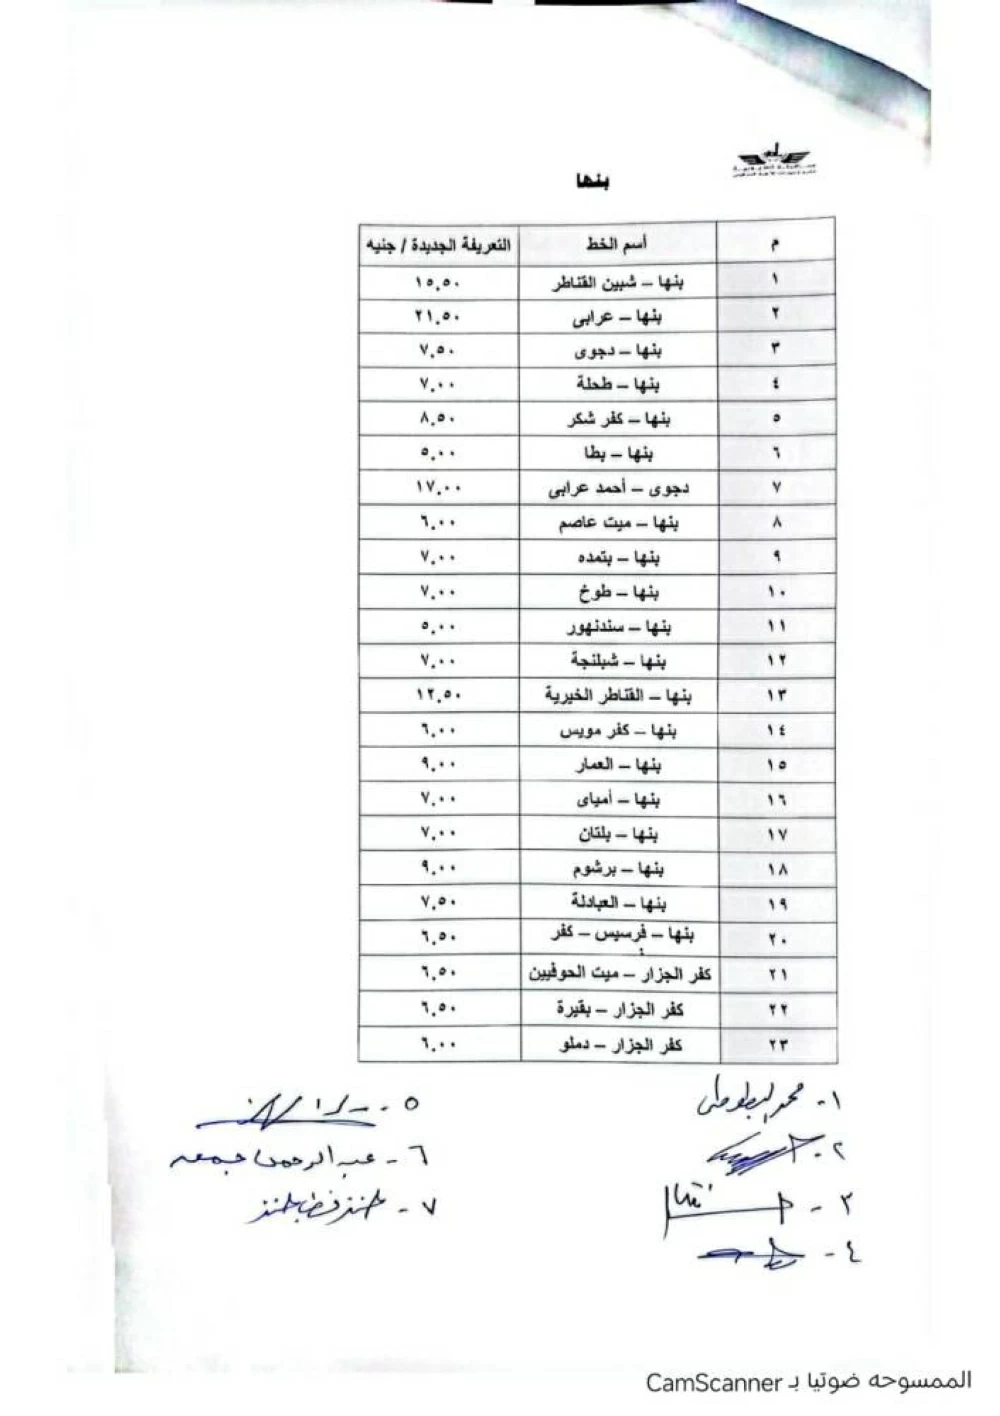 بنها
م أسم الخط التعريفة الجديدة / جنيه
١ بنها – شبين القناطر ١٥,٥٠
٢ بنها – عرابى ٢١,٥٠
٣ بنها – دجوى ٧,٥٠
٤ بنها – طحلة ٧,٠٠
٥ بنها – كفر شكر ٨,٥٠
٦ بنها – بطا ٥,٠٠
٧ دجوى – أحمد عرابى ١٧,٠٠
٨ بنها – ميت عاصم ٦,٠٠
٩ بنها – بتمده ٧,٠٠
١٠ بنها – طوخ ٧,٠٠
١١ بنها – سندنهور ٥,٠٠
١٢ بنها – شبلنجة ٧,٠٠
١٣ بنها – القناطر الخيرية ١٢,٥٠
١٤ بنها – كفر مويس ٦,٠٠
١٥ بنها – العمار ٩,٠٠
١٦ بنها – أمياى ٧,٠٠
١٧ بنها – بلتان ٧,٠٠
١٨ بنها – برشوم ٩,٠٠
١٩ بنها – العبادلة ٧,٥٠
٢٠ بنها – فرسيس – كفر ٦,٥٠
٢١ كفر الجزار – ميت الحوفيين ٦,٥٠
٢٢ كفر الجزار – بقيرة ٦,٥٠
٢٣ كفر الجزار – دملو ٦,٠٠
١- محمد
٢-
٣-
٤-
٥-
٦- عبد الرحمن جمعه
٧-
الممسوحه ضوئيا بـ CamScanner